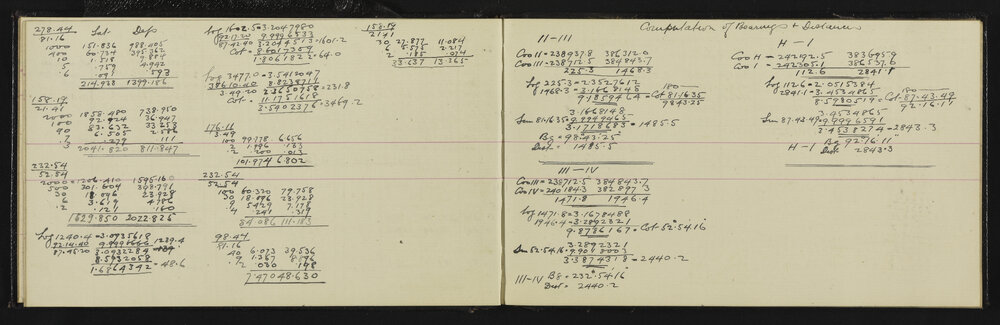 278.44 Lat Deps
81.16
1000 151.836 988.405
400 60.734 395.362
10 1.518 9.884
5 .759 4.942
.6 .091 .593
214.938 1399.186
158.19
21.41
2000 1858.480 738.950
100 92.924 36.947
90 83.632 33.253
7 6.505 2.586
.3 .279 .111
2041.820 811.847
232.54
52.84
2000 = 1206.410 1595.160
500 301.604 398.791
30 18.096 23.928
6 3.619 4.786
.2 .121 .160
1629.850 2022.826
Log 1240.4 = 3.0935618
92.14.40 9.9996666 1239.4
87.45.20 3.0932284
8.5932058
1.6864342 = 48.6
Log 1602.5 = 3.2047980
92.17.20 9.9996533
87.42.40 3.2044513 = 1601.2
Cot = 8.6017309
1.8061822 = 64.0
Log 3477.0 = 3.5412047
38610.40 8.8238711
3.49.20 2.3650758 = 231.8
Cot. = 11.1751618
3.5402376 = 3469.2
176.11
3.49
100 99.778 6.656
2 1.996 .133
.2 .200 .013
101.974 6.802
232.54
52.54
100 60.320 79.758
30 18.096 23.928
9 5.429 7.178
.4 .241 .319
84.086 111.183
98.44
81.16
40 6.073 39.536
9 1.367 8.896
.2 .030 .198
7.470 48.630
158.19
21.41
30 27.877 11.084
6 5.575 2.217
.2 .185 .074
33.637 13.365
Computation of Bearings & Distances
II-III
Coo II = 238937.8 386312.0
Coo III = 238712.5 384843.7
225.3 1468.3
Log 225.3 = 2.3527612
1468.3 = 3.1668148
9.1859464 = Cot 81.16.35
180
98.43.25
3.1668148
Sin 81.16.35 = 9.9949465
3.1718683 = 1485.5
Bg = 98.43.25"
Dist = 1485.5
III-IV
Coo III = 238712.5 384843.7
Coo IV = 240184.3 382897.3
1471.8 1946.4
Log 1471.8 = 3.1678488
1946.4 = 3.2892321
9.8786167 = Cot 52.54.16
3.2892321
Sin 52.54.16 = 9.9018003
3.3874318 = 2440.2
III-IV Bg = 232°.54.16
Dist = 2440.2
H-I
Coo H = 242192.5 383695.9
Coo I = 242305.1 386537.6
112.6 2841.8
Log 112.6 = 2.0515384
2841.1 = 3.4534865
8.5980519 = Cot 87.43.49
180
92.16.11
3.4534865
Sin 87.43.49 = 9.9996591
3.4538274 = 2843.3
H-I Bg 92°.16.11
Dist 2843.3